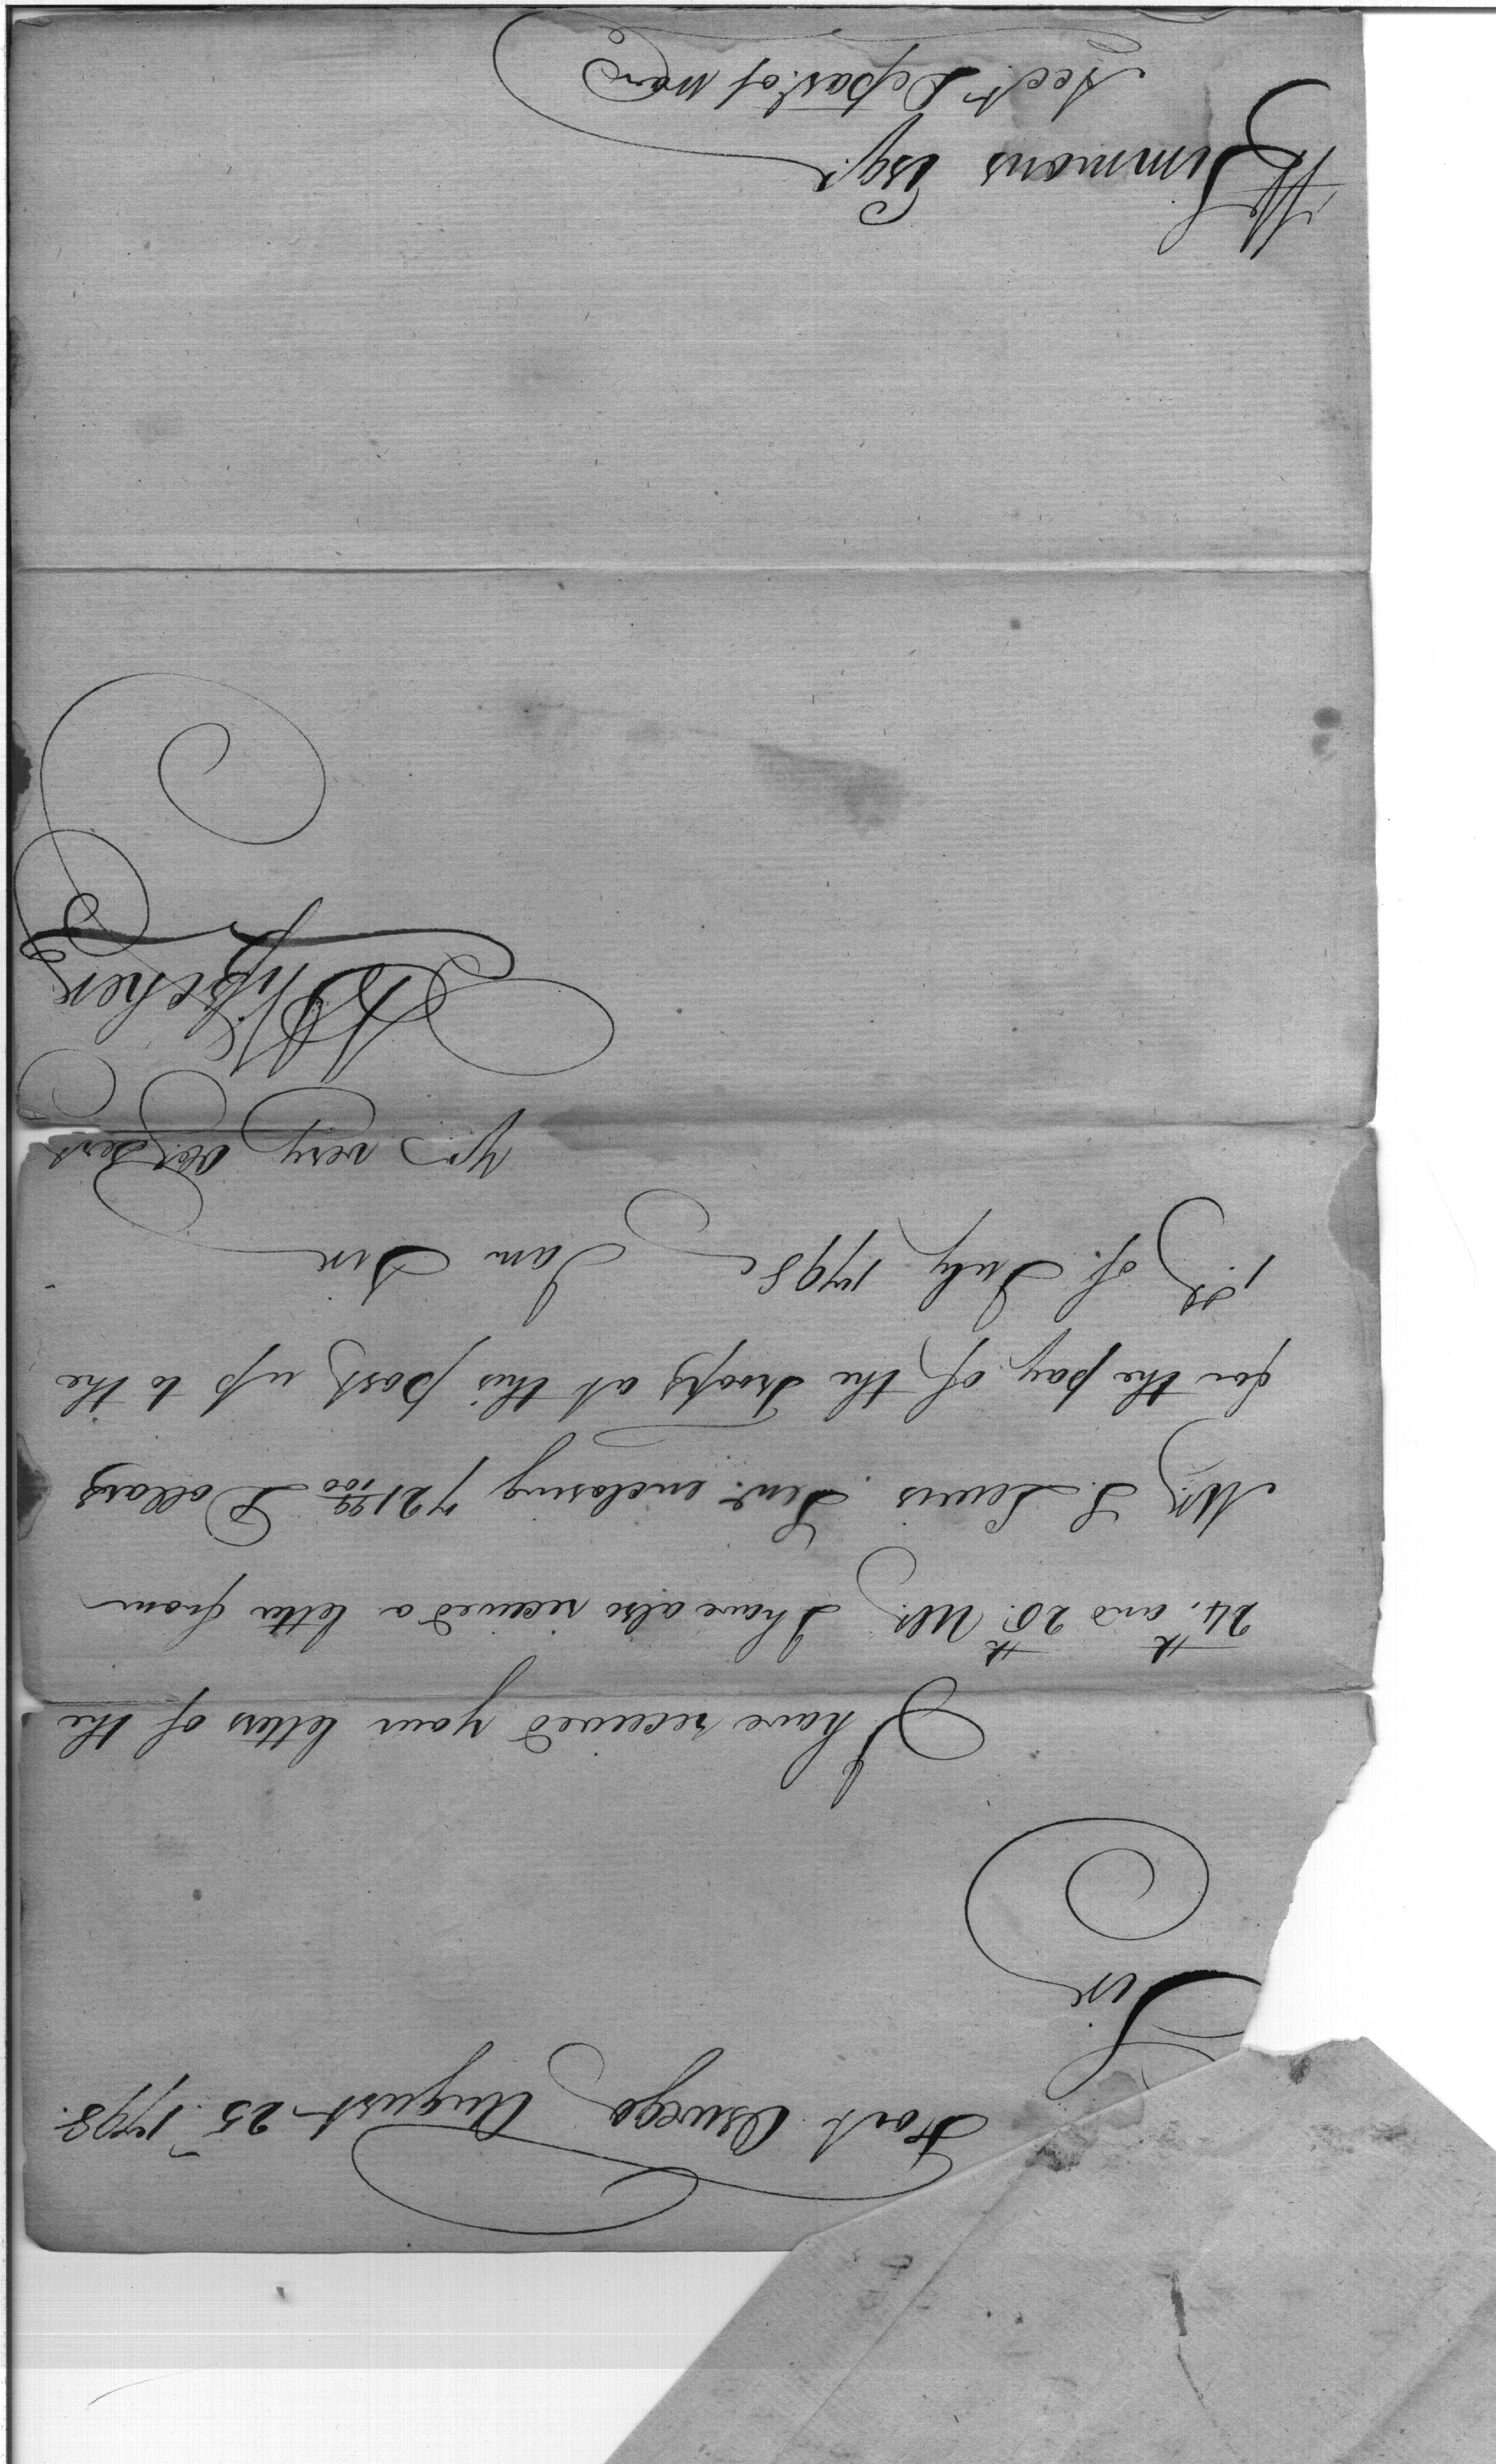 Fort Oswego August 25 1798.
Sir
I have received your letters of the
24th and 28th Ultr. I have also received a letter from
Mr. S. Lewis Senr. enclosing 721 99/100 Dollars
for the pay of the troops at this post, up to the
1st of July 1798
I am Sir
Yr very obt Sert
W Simmons Esqr.
Acct Depart. of War